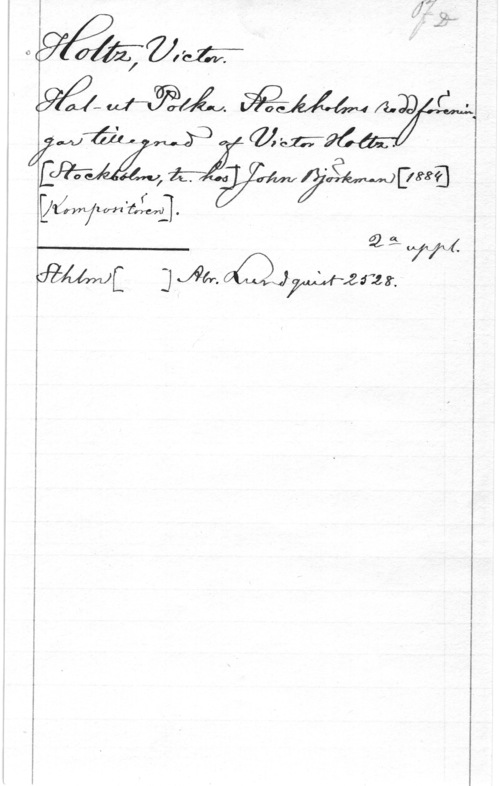 Holtz, Victor.
Hal-ut Polka. Stockholms roddförenin-
gar tillegnad af Victor Holtz.
[Stockholm, tr. hos] John Björkman [1884]
[Kompositören].
2a uppl.
Sthlm [ ] Abr. Lundquist 2528.